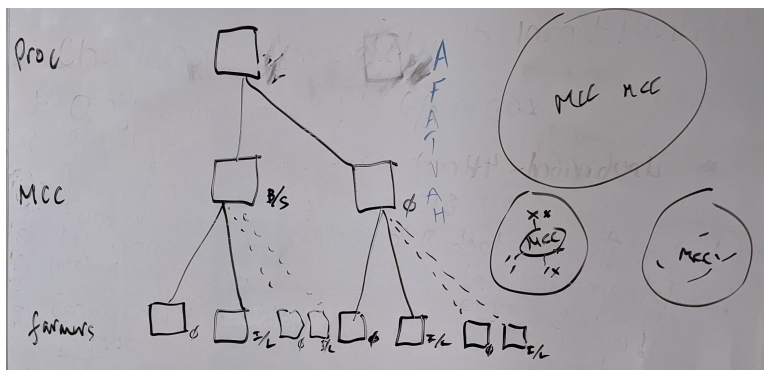 Proc
MCC MCC
MCC
B/S
φ
MCC
MCC
farmers
φ
I/L
φ
I/L
φ
I/L
φ
I/L